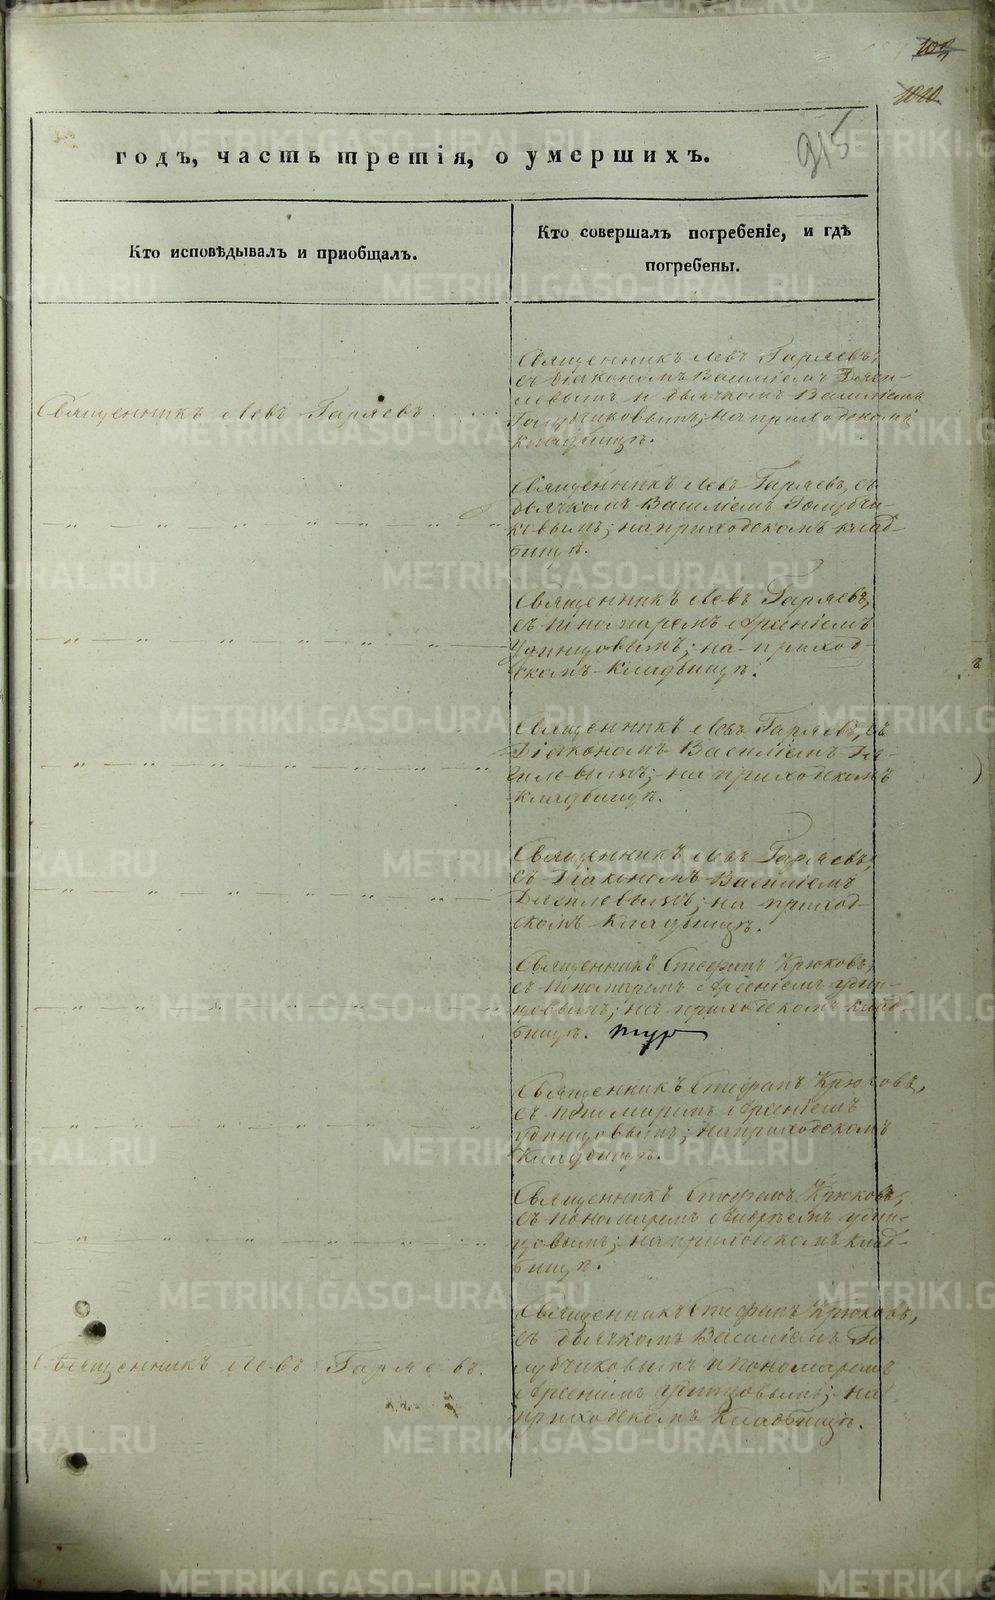 1010
215
годъ, часть третія, о умершихъ.
Кто исповѣдывалъ и приобщалъ.
Кто совершалъ погребеніе, и гдѣ
погребены.
Священникъ Левъ Гаряевъ
Священникъ Левъ Гаряевъ,
съ діакономъ Василіемъ
левымъ и дьячкомъ Василіемъ
Голубчиковымъ; на приходскомъ
кладбищѣ.
Священникъ Левъ Гаряевъ, съ
дьячкомъ Василіемъ Голубчи-
ковымъ; на приходскомъ клад-
бищѣ.
Священникъ Левъ Гаряевъ,
съ пономаремъ Арсеніемъ
Удинцовымъ; на приход-
скомъ кладбищѣ.
Священникъ Левъ Гаряевъ, съ
Діакономъ Василіемъ
левымъ; на приходскомъ
кладбищѣ.
Священникъ Левъ Гаряевъ,
съ Діакономъ Василіемъ
левымъ; на приход-
скомъ кладбищѣ.
Священникъ Стефанъ Крюковъ,
съ пономаремъ Арсеніемъ Удин-
цовымъ; на приходскомъ клад-
бищѣ.
Священникъ Стефанъ Крюковъ,
съ пономаремъ Арсеніемъ
Удинцовымъ; на приходскомъ
кладбищѣ.
Священникъ Стефанъ Крюковъ,
съ пономаремъ Удин-
цовымъ; на приходскомъ клад-
бищѣ.
Священникъ Стефанъ Крюковъ,
съ дьячкомъ Василіемъ Го
Священникъ Левъ Гаряевъ.
лубчиковымъ и пономаремъ
Арсеніемъ Удинцовымъ; на
приходскомъ кладбищѣ.
METRIKI.GASO-URAL.RU